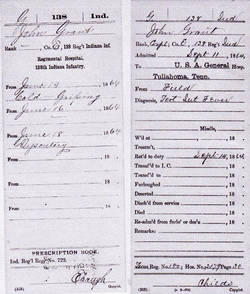 G | 138 | Ind.
John Grant
Rank , Co. C, 138 Reg't Indiana Inf.
Regimental Hospital,
138th Indiana Infantry.
From June 14 1864
Cold Griping
From June 16 1864
From June 18 1864
Dysentery
From , 18
From , 18
From , 18
From , 18
From , 18
PRESCRIPTION BOOK.
Ind. Reg't Reg. No. 722.
Copyist.
G | 138 | Ind
John Grant
Rank , Co. C, 138 Reg't Ind
Admitted Sept 11, 1864
To U. S. A. General Hosp.
Tullahoma, Tenn.
From Field
Diagnosis, Int Fever
W'd at , 18
Treated , 18
Ret'd to duty Sept 14, 1864
Transf'd to I. C. , 18
Transf'd to , 18
Furloughed , 18
Deserted , 18
Discharged from service , 18
Died , 18
Re-adm'd from furlo' or des'n , 18
Remarks:
Tenn. Reg. No. ; Hos. No. ; Page
Childs
Copyist.